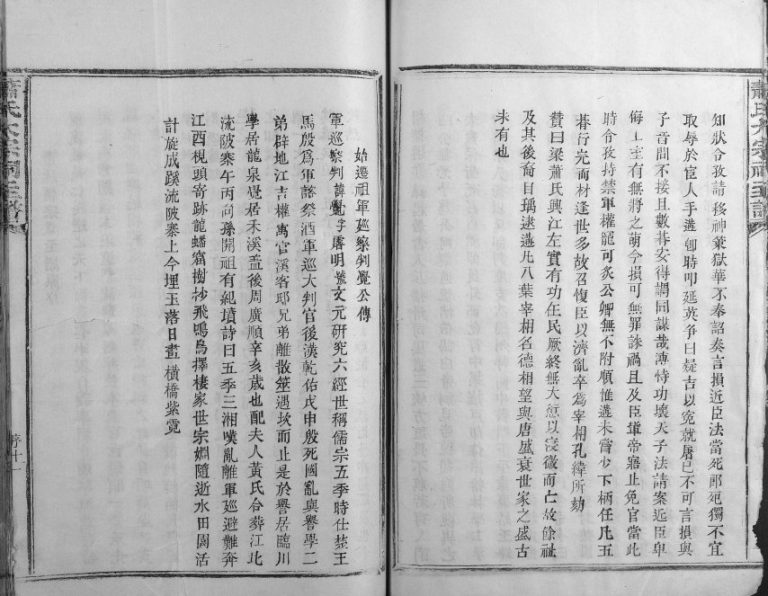 知狀令孜請移神策獄華不奉詔奏言損近臣法當死即死獨不宜
取辱於宦人手遘卽時叩延英爭曰疑吉以冤就屠已不可言損與
子音問不接且數朞安得謂同謀哉溥恃功壞天子法請案近臣卑
侮王室有無將之萌今損可無罪誅禍且及臣軰帝寤止免官當此
時令孜持禁軍權寵可炙公卿無不附順惟遘未嘗少下柄任凡五
朞行完而材逢世多故召復臣以濟亂卒為宰相孔緯所劾
贊曰梁蕭氏興江左實有功在民厥終無大惡以寖微而亡故餘祉
及其後裔自瑀逮遘凡八葉宰相名德相望與唐盛衰世家之盛古
未有也
始遷祖軍廵察判覺公傳
軍巡察判諱覺字唐明號文元研究六經世稱儒宗五季時仕楚王
馬殷爲軍諮祭酒軍巡大判官後漢乾佑戊申殷死國亂與譽學二
弟辟地江吉權寓官溪客邸兄弟離散筮遇坎而止是於譽居臨川
學居龍泉覺居禾溪盖後周廣順辛亥歲也配夫人黃氏合葬江北
流陂寨午丙向孫開祖有紀墳詩曰五季三湘嘆亂離軍廵避難奔
江西梘頭寄跡龍蟠窟樹抄飛鳴鳥擇棲家世宗嫺隨逝水田園活
計旋成蹊流陂寨上今埋玉落日畫橫橋紫霓
蕭氏大宗祠主譜
序十一